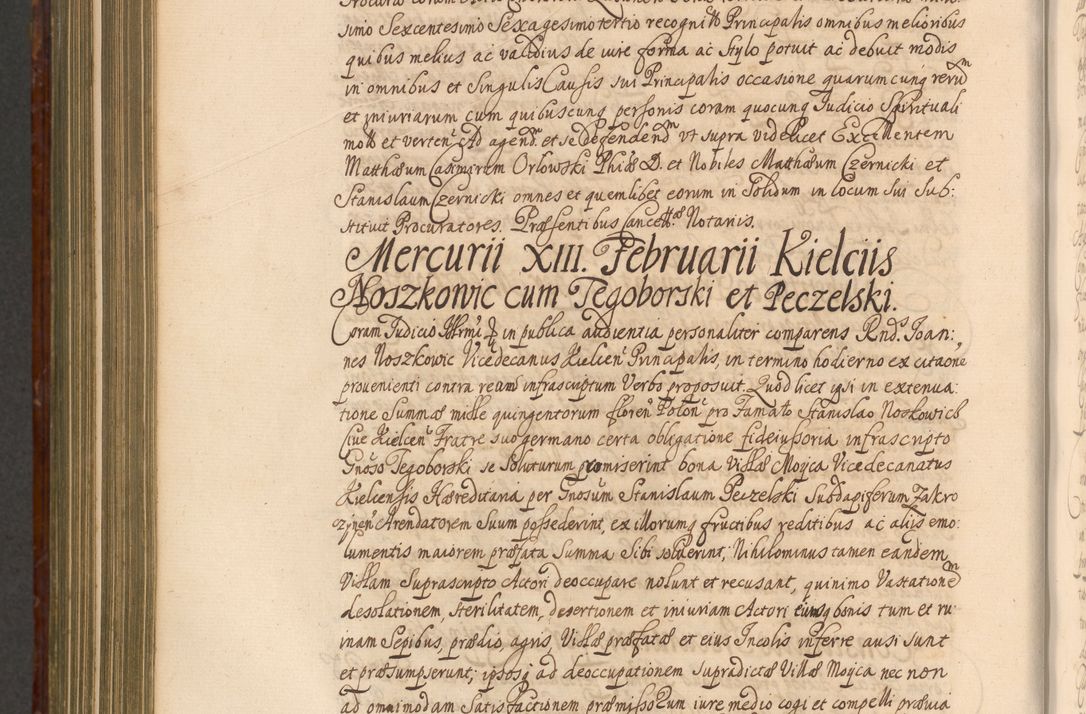 simo Sexcentesimo Sexagesimotertio recognitt Principalis omnibus melioribus
quibus melius ac validius de iure forma ac Stylo potuit ac debuit modis
in omnibus et Singulis Causis sui Principalis occasione quarumcunq rerum
et iniuriarum cum quibuscunq personis coram quocunq Judicio Spirituali
mott et verten Ad agend et se defendendm vt supra videlicet Excellentem
Matthæum Casimirum Orlowski Phiæ D. et Nobiles Matthæum Czernicki et
Stanislaum Czernicki omnes et quemlibet eorum in Solidum in locum Sui Sub:
stituit Procuratores. Præsentibus Cancettæ Notariis.
Mercurii XIII. Februarii Kielciis
Noszkowic cum Tegoborski et Peczelski.
Coram Judicio in publica audientia personaliter comparens Rnds Joan:
nes Noszkowic Vicedecanus Kielcen Principalis, in termino hodierno ex citaõne
provenienti contra reum infrascriptum Verbo proposuit. Quod licet ipsi in extenua:
tione Summæ mille quingentorum floren Polon pro Famato Stanislao Noskowicz
Cive Kielcen Fratre suo germano certa obligatione fideiussoria infrascripto
Gnoso Tegoborski se Soluturum promiserint bona Villæ Moyca Vicedecanatus
Kielcensis Hæreditaria per Gnosum Stanislaum Peczelski Subdapiferum Zakro
czynen Arendatorem Suum possederint, ex illorumq fructibus reditibus ac alijs emo:
lumentis maiorem præfata Summa Sibi solverint, Nihilominus tamen eandem
Villam Suprascripto Actori deoccupare nolunt et recusant, quinimo Vastationem
desolationem, sterilitatem, desertionem et iniuriam Actori eiusq bonis tum et ru:
inam Sepibus, prædio, agris, Villæ præfatæ et eius Incolis inferre ausi sunt
et præsumpserunt; ipsosq ad deoccupationem supradictæ Villæ Moyca nec non
ad omnimodam Satisfactionem præmissorum iure medio cogi et compelli prævia